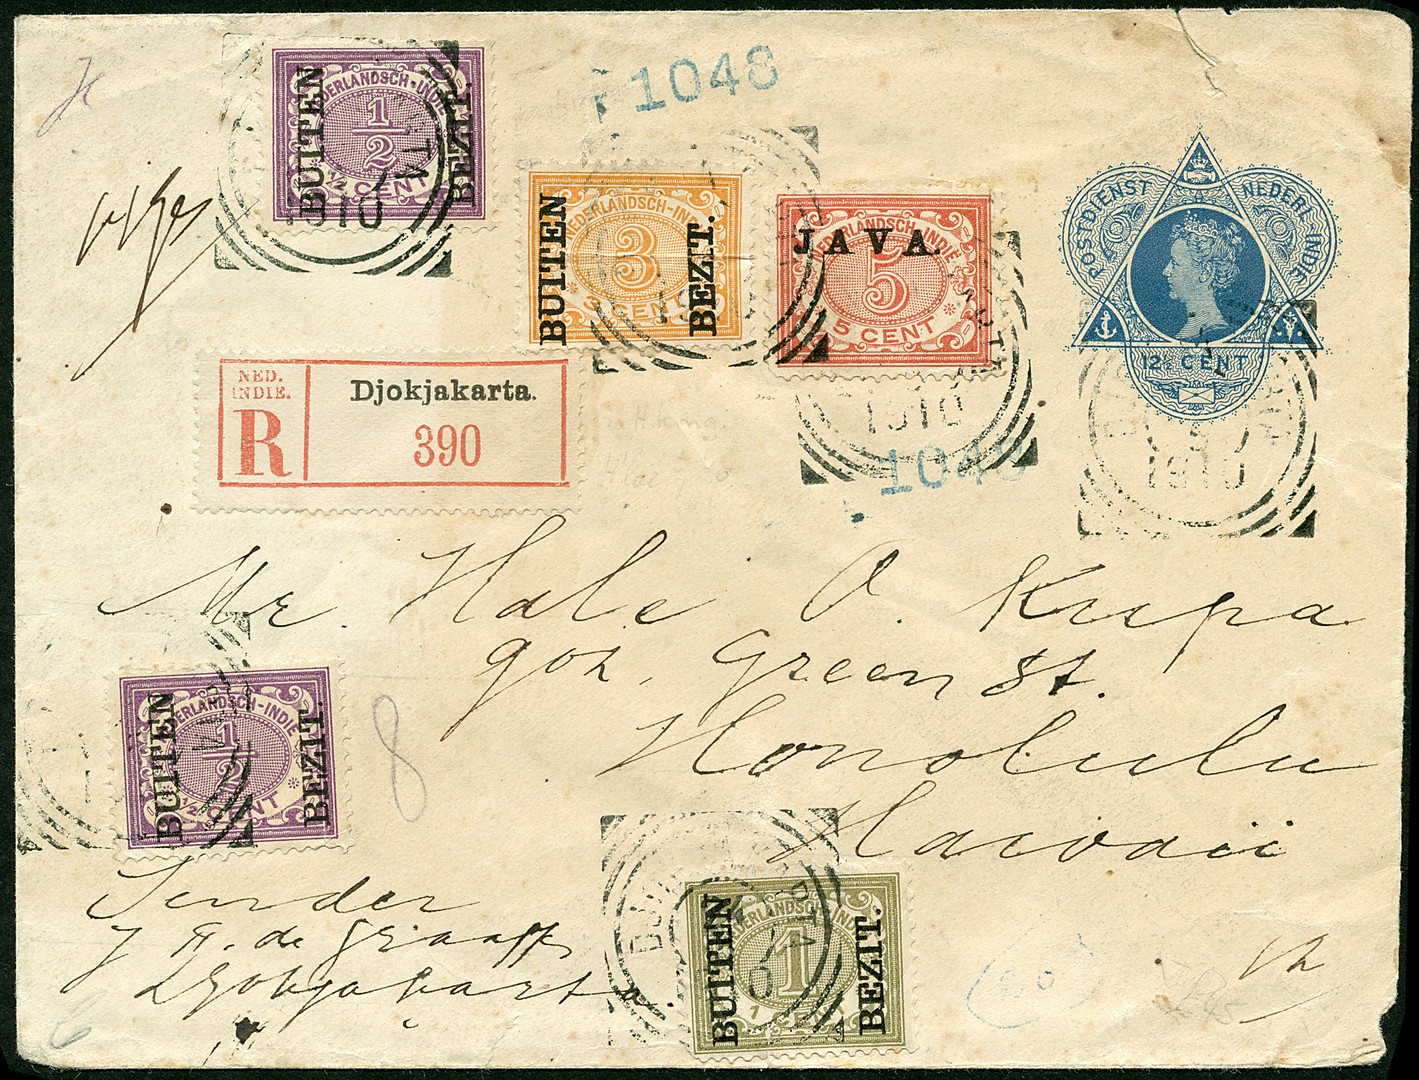 1048
BUITEN BEZIT.
NEDERLANDSCH-INDIE
1/2
1/2 CENT
1910
BUITEN BEZIT.
NEDERLANDSCH-INDIE
3
3 CENT
JAVA.
NEDERLANDSCH-INDIE
5
5 CENT
1910
POSTDIENST NEDERL-INDIE
12½ CENT
1910
NED. INDIE.
R
Djokjakarta.
390
1048
Mr. Hale O. Kupa
Green St.
Honolulu
Hawaii
BUITEN BEZIT.
NEDERLANDSCH-INDIE
1/2
1/2 CENT
8
Sender
J H. de Graaff
Djokjakarta
BUITEN BEZIT.
NEDERLANDSCH-INDIE
1
1 CENT